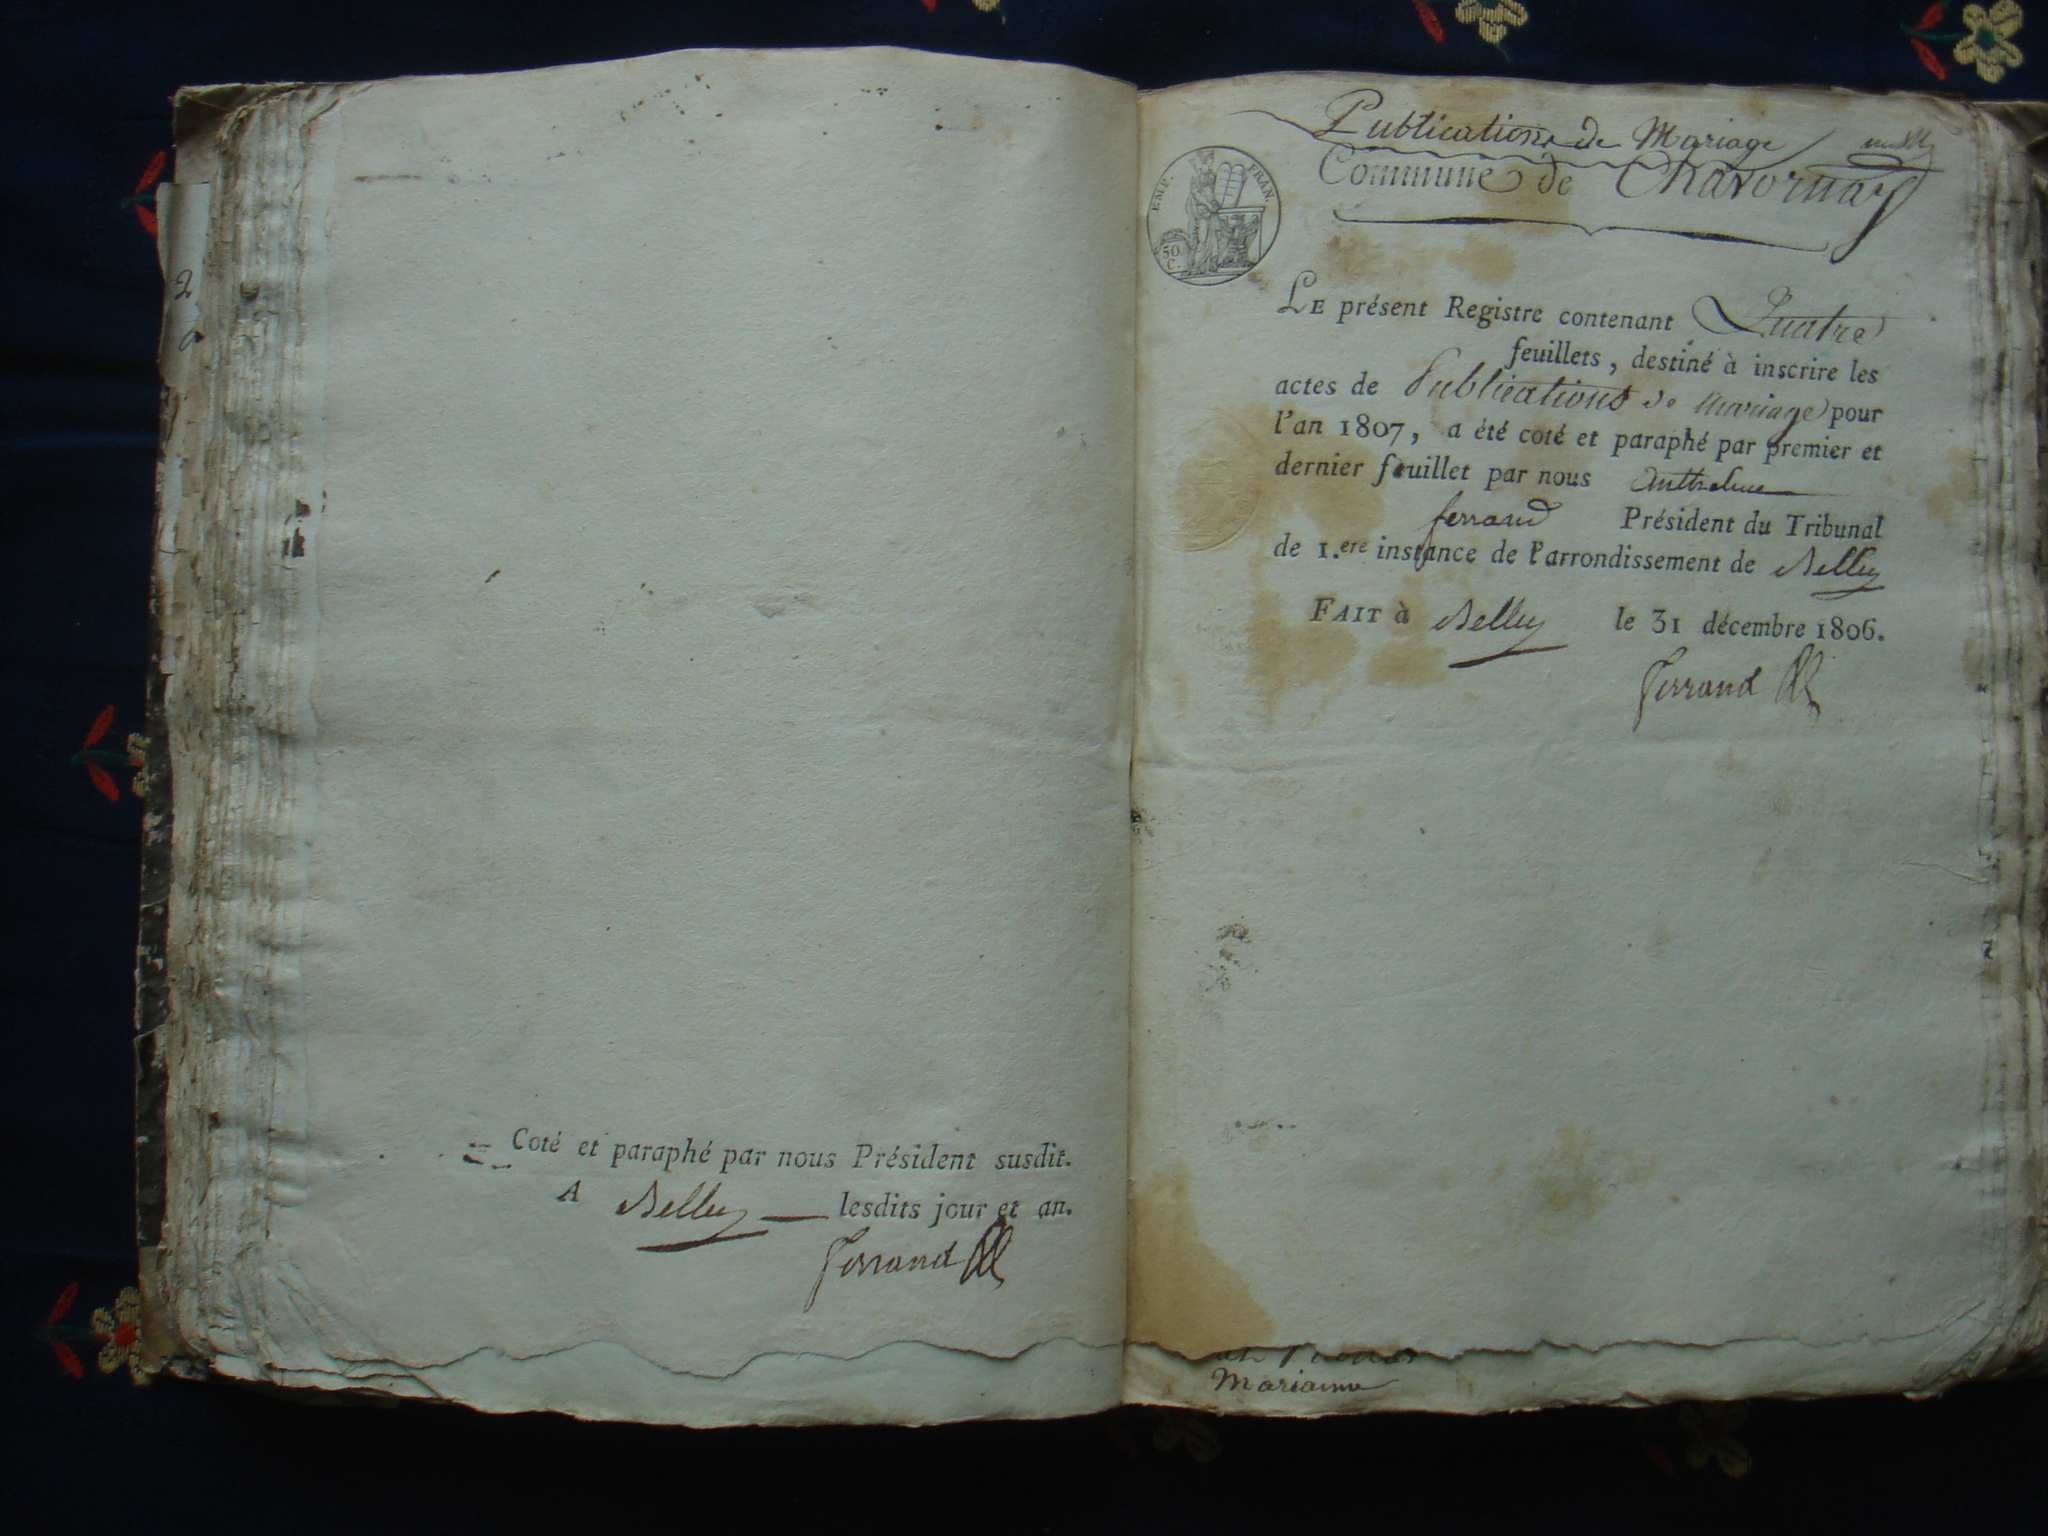 2
Coté et paraphé par nous Président susdit.
A Belley lesdits jour et an.
Ferrand
Publications de Mariage
Commune de Chavornay
EMP. FRAN.
50
C.
LE présent Registre contenant Quatre
feuillets, destiné à inscrire les
actes de Publications de mariage pour
l'an 1807, a été coté et paraphé par premier et
dernier feuillet par nous Anthelme
ferrand Président du Tribunal
de 1.ere instance de l'arrondissement de Belley
FAIT à Belley le 31 décembre 1806.
Ferrand
Marianne